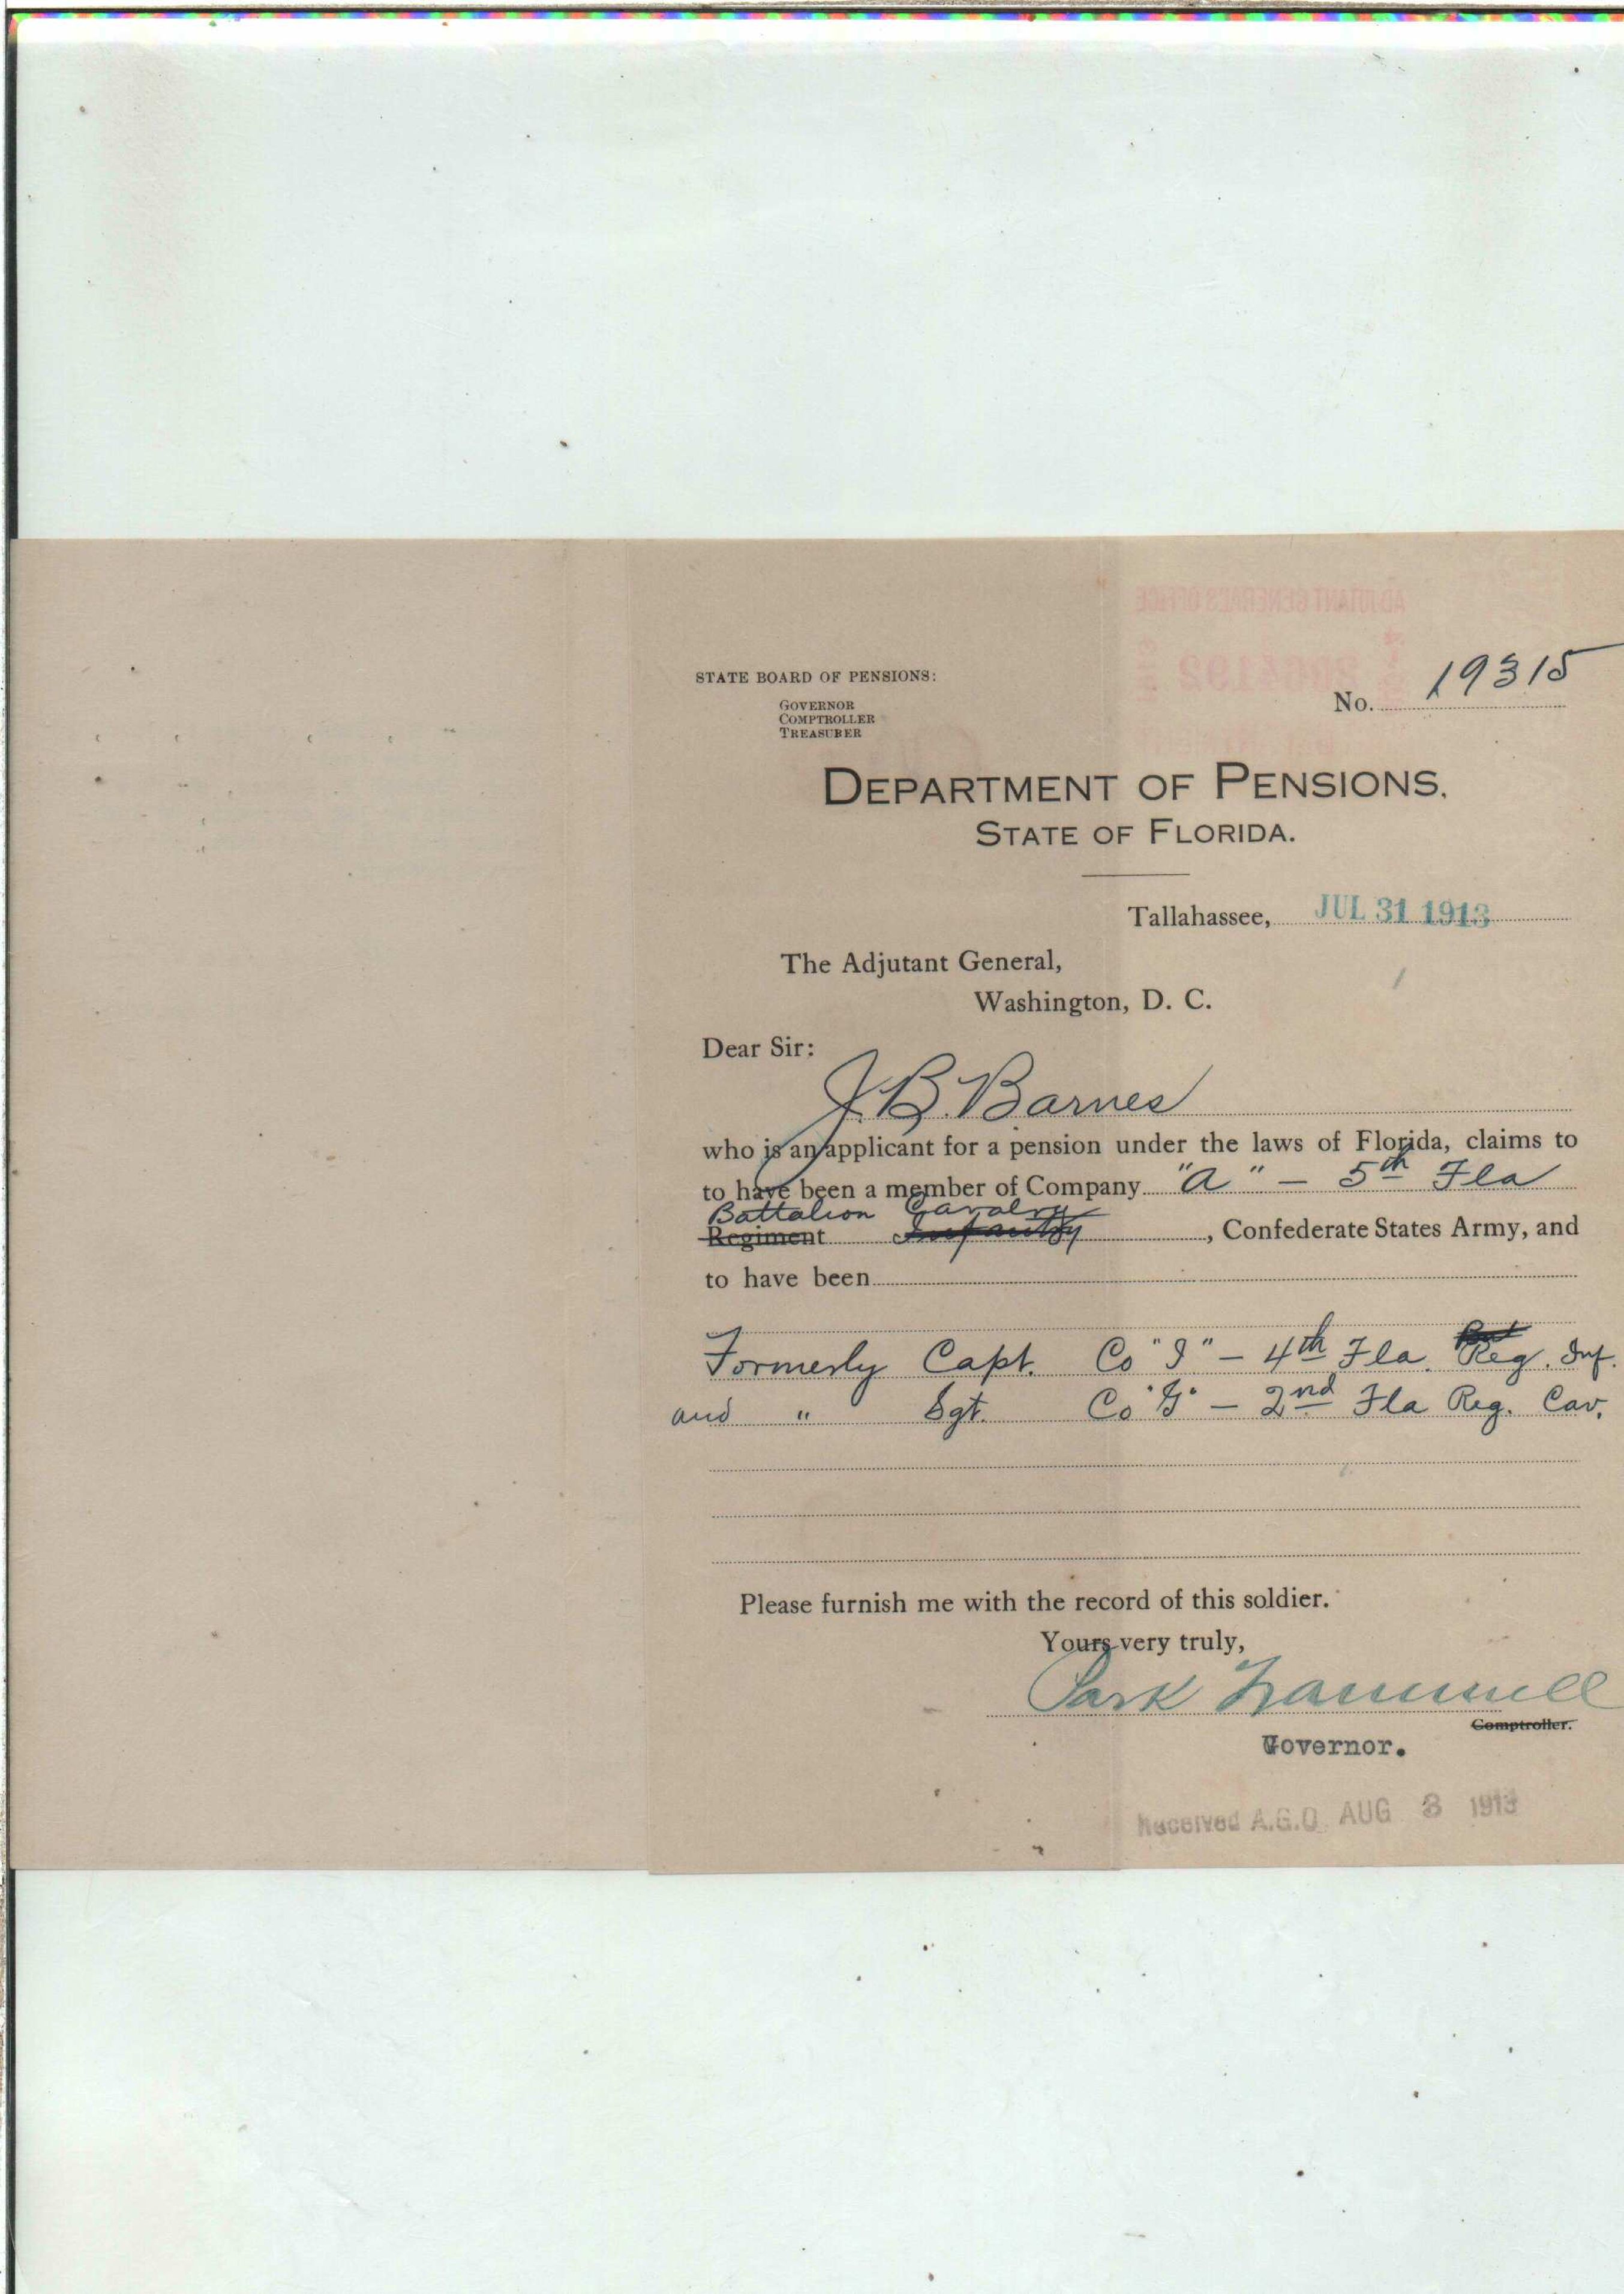 STATE BOARD OF PENSIONS:
GOVERNOR
COMPTROLLER
TREASURER
No. 19315
DEPARTMENT OF PENSIONS.
STATE OF FLORIDA.
Tallahassee, JUL 31 1913
The Adjutant General,
Washington, D. C.
Dear Sir:
J. B. Barnes
who is an applicant for a pension under the laws of Florida, claims to
to have been a member of Company "A" – 5th Fla
Battalion Cavalry
Regiment Infantry, Confederate States Army, and
to have been
Formerly Capt. Co "I" – 4th Fla. Reg. Inf.
and " Sgt. Co "G" – 2nd Fla Reg. Cav.
Please furnish me with the record of this soldier.
Yours very truly,
Park Trammell
Comptroller.
Governor.
Received A.G.O. AUG 3 1913
ADJUTANT GENERAL'S OFFICE